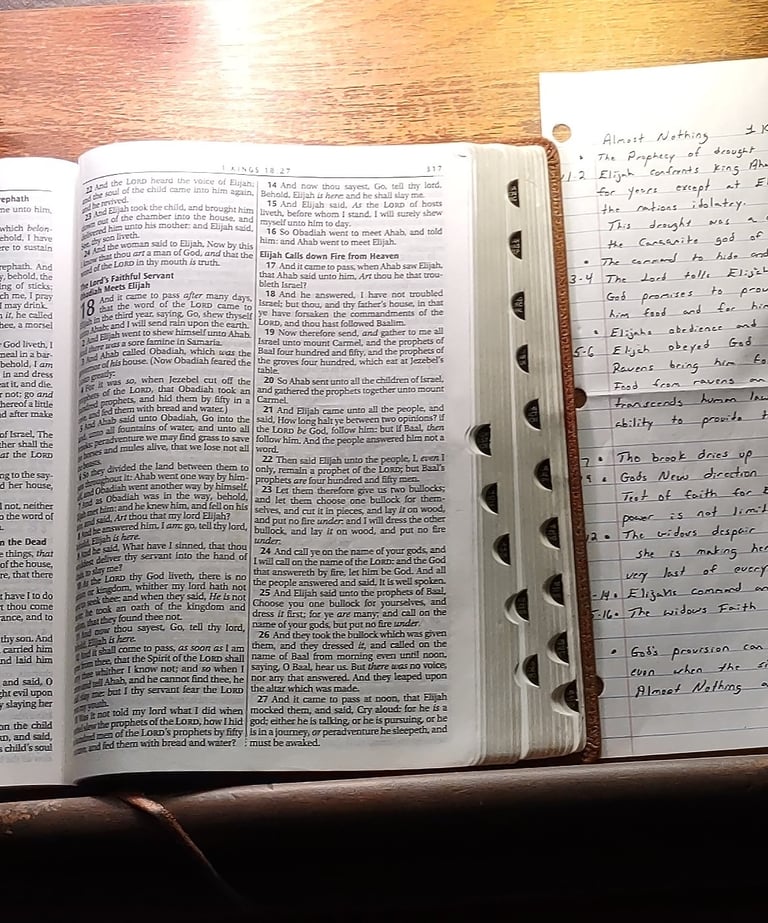 rephath
me unto him,
which belon-
ehold, I have
ere to sustain
rephath. And
y, behold, the
ing of sticks;
ch me, I pray
I may drink.
it, he called
hee, a morsel
God liveth, I
meal in a bar-
behold, I am
in and dress
eat it, and die.
r not; go and
thereof a little
d after make
of Israel, The
ther shall the
at the LORD
ng to the say-
d her house,
l not, neither
o the word of
n the Dead
e things, that
of the house,
re, that there
t have I to do
t thou come
rance, and to
thy son. And
carried him
nd laid him
and said, O
ght evil upon
y slaying her
on the child
RD, and said,
s child's soul
1 KINGS 18:27
317
22 And the LORD heard the voice of Elijah;
and the soul of the child came into him again,
he revived.
23 And Elijah took the child, and brought him
down out of the chamber into the house, and
delivered him unto his mother: and Elijah said,
thy son liveth.
24 And the woman said to Elijah, Now by this
know that thou art a man of God, and that the
word of the LORD in thy mouth is truth.
The Lord's Faithful Servant
Obadiah Meets Elijah
18 And it came to pass after many days,
that the word of the LORD came to
in the third year, saying, Go, shew thyself
Ahab; and I will send rain upon the earth.
2 And Elijah went to shew himself unto Ahab.
there was a sore famine in Samaria.
And Ahab called Obadiah, which was the
governor of his house. (Now Obadiah feared the
greatly:
For it was so, when Jezebel cut off the
prophets of the LORD, that Obadiah took an
hundred prophets, and hid them by fifty in a
and fed them with bread and water.)
And Ahab said unto Obadiah, Go into the
unto all fountains of water, and unto all
peradventure we may find grass to save
horses and mules alive, that we lose not all
beasts.
So they divided the land between them to
throughout it: Ahab went one way by him-
and Obadiah went another way by himself.
And as Obadiah was in the way, behold,
met him: and he knew him, and fell on his
and said, Art thou that my lord Elijah?
And he answered him, I am: go, tell thy lord,
Elijah is here.
And he said, What have I sinned, that thou
deliver thy servant into the hand of
to slay me?
the LORD thy God liveth, there is no
or kingdom, whither my lord hath not
seek thee: and when they said, He is not
he took an oath of the kingdom and
that they found thee not.
And now thou sayest, Go, tell thy lord,
Elijah is here.
And it shall come to pass, as soon as I am
from thee, that the Spirit of the LORD shall
thee whither I know not; and so when I
and tell Ahab, and he cannot find thee, he
slay me: but I thy servant fear the LORD
my youth.
Was it not told my lord what I did when
slew the prophets of the LORD, how I hid
hundred men of the LORD's prophets by fifty
and fed them with bread and water?
14 And now thou sayest, Go, tell thy lord,
Behold, Elijah is here: and he shall slay me.
15 And Elijah said, As the LORD of hosts
liveth, before whom I stand, I will surely shew
myself unto him to day.
16 So Obadiah went to meet Ahab, and told
him: and Ahab went to meet Elijah.
Elijah Calls down Fire from Heaven
17 And it came to pass, when Ahab saw Elijah,
that Ahab said unto him, Art thou he that trou-
bleth Israel?
18 And he answered, I have not troubled
Israel; but thou, and thy father's house, in that
ye have forsaken the commandments of the
LORD, and thou hast followed Baalim.
19 Now therefore send, and gather to me all
Israel unto mount Carmel, and the prophets of
Baal four hundred and fifty, and the prophets of
the groves four hundred, which eat at Jezebel's
table.
20 So Ahab sent unto all the children of Israel,
and gathered the prophets together unto mount
Carmel.
21 And Elijah came unto all the people, and
said, How long halt ye between two opinions? if
the LORD be God, follow him: but if Baal, then
follow him. And the people answered him not a
word.
22 Then said Elijah unto the people, I, even I
only, remain a prophet of the LORD; but Baal's
prophets are four hundred and fifty men.
23 Let them therefore give us two bullocks;
and let them choose one bullock for them-
selves, and cut it in pieces, and lay it on wood,
and put no fire under: and I will dress the other
bullock, and lay it on wood, and put no fire
under:
24 And call ye on the name of your gods, and
I will call on the name of the LORD: and the God
that answereth by fire, let him be God. And all
the people answered and said, It is well spoken.
25 And Elijah said unto the prophets of Baal,
Choose you one bullock for yourselves, and
dress it first; for ye are many; and call on the
name of your gods, but put no fire under.
26 And they took the bullock which was given
them, and they dressed it, and called on the
name of Baal from morning even until noon,
saying, O Baal, hear us. But there was no voice,
nor any that answered. And they leaped upon
the altar which was made.
27 And it came to pass at noon, that Elijah
mocked them, and said, Cry aloud: for he is a
god; either he is talking, or he is pursuing, or he
is in a journey, or peradventure he sleepeth, and
must be awaked.
Almost Nothing 1 K
• The Prophecy of drought
1.2 Elijah confronts King Aha
for years except at El
the nations idolatry.
This drought was a
the Canaanite god of
• The command to hide and
3-4 The Lord tells Elijah
God promises to prov
him food and for him
• Elijahs obedience and
5-6 Elijah obeyed God
Ravens bring him foo
Food from ravens an
transcends human law
ability to provide t
7 • The brook dries up
9 • Gods New direction
Test of faith for E
power is not limit
12 • The widows despair
she is making her
very last of every
-14 • Elijahs command an
5-16 • The widows Faith
• God's provision can
even when the si
Almost Nothing a